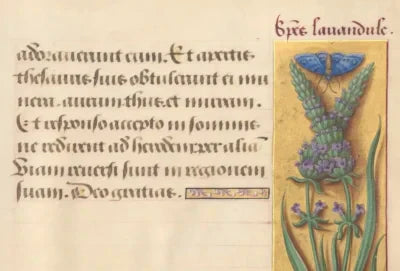 Spēs lauandule.
adorauerunt eum. Et apertis
thesauris suis obtulerunt ei mu
nera. aurum thus et mirram.
Et responso accepto in somnis
ne redirent ad herodem per aliā
viam reuersi sunt in regionem
suam. Deo gratias.